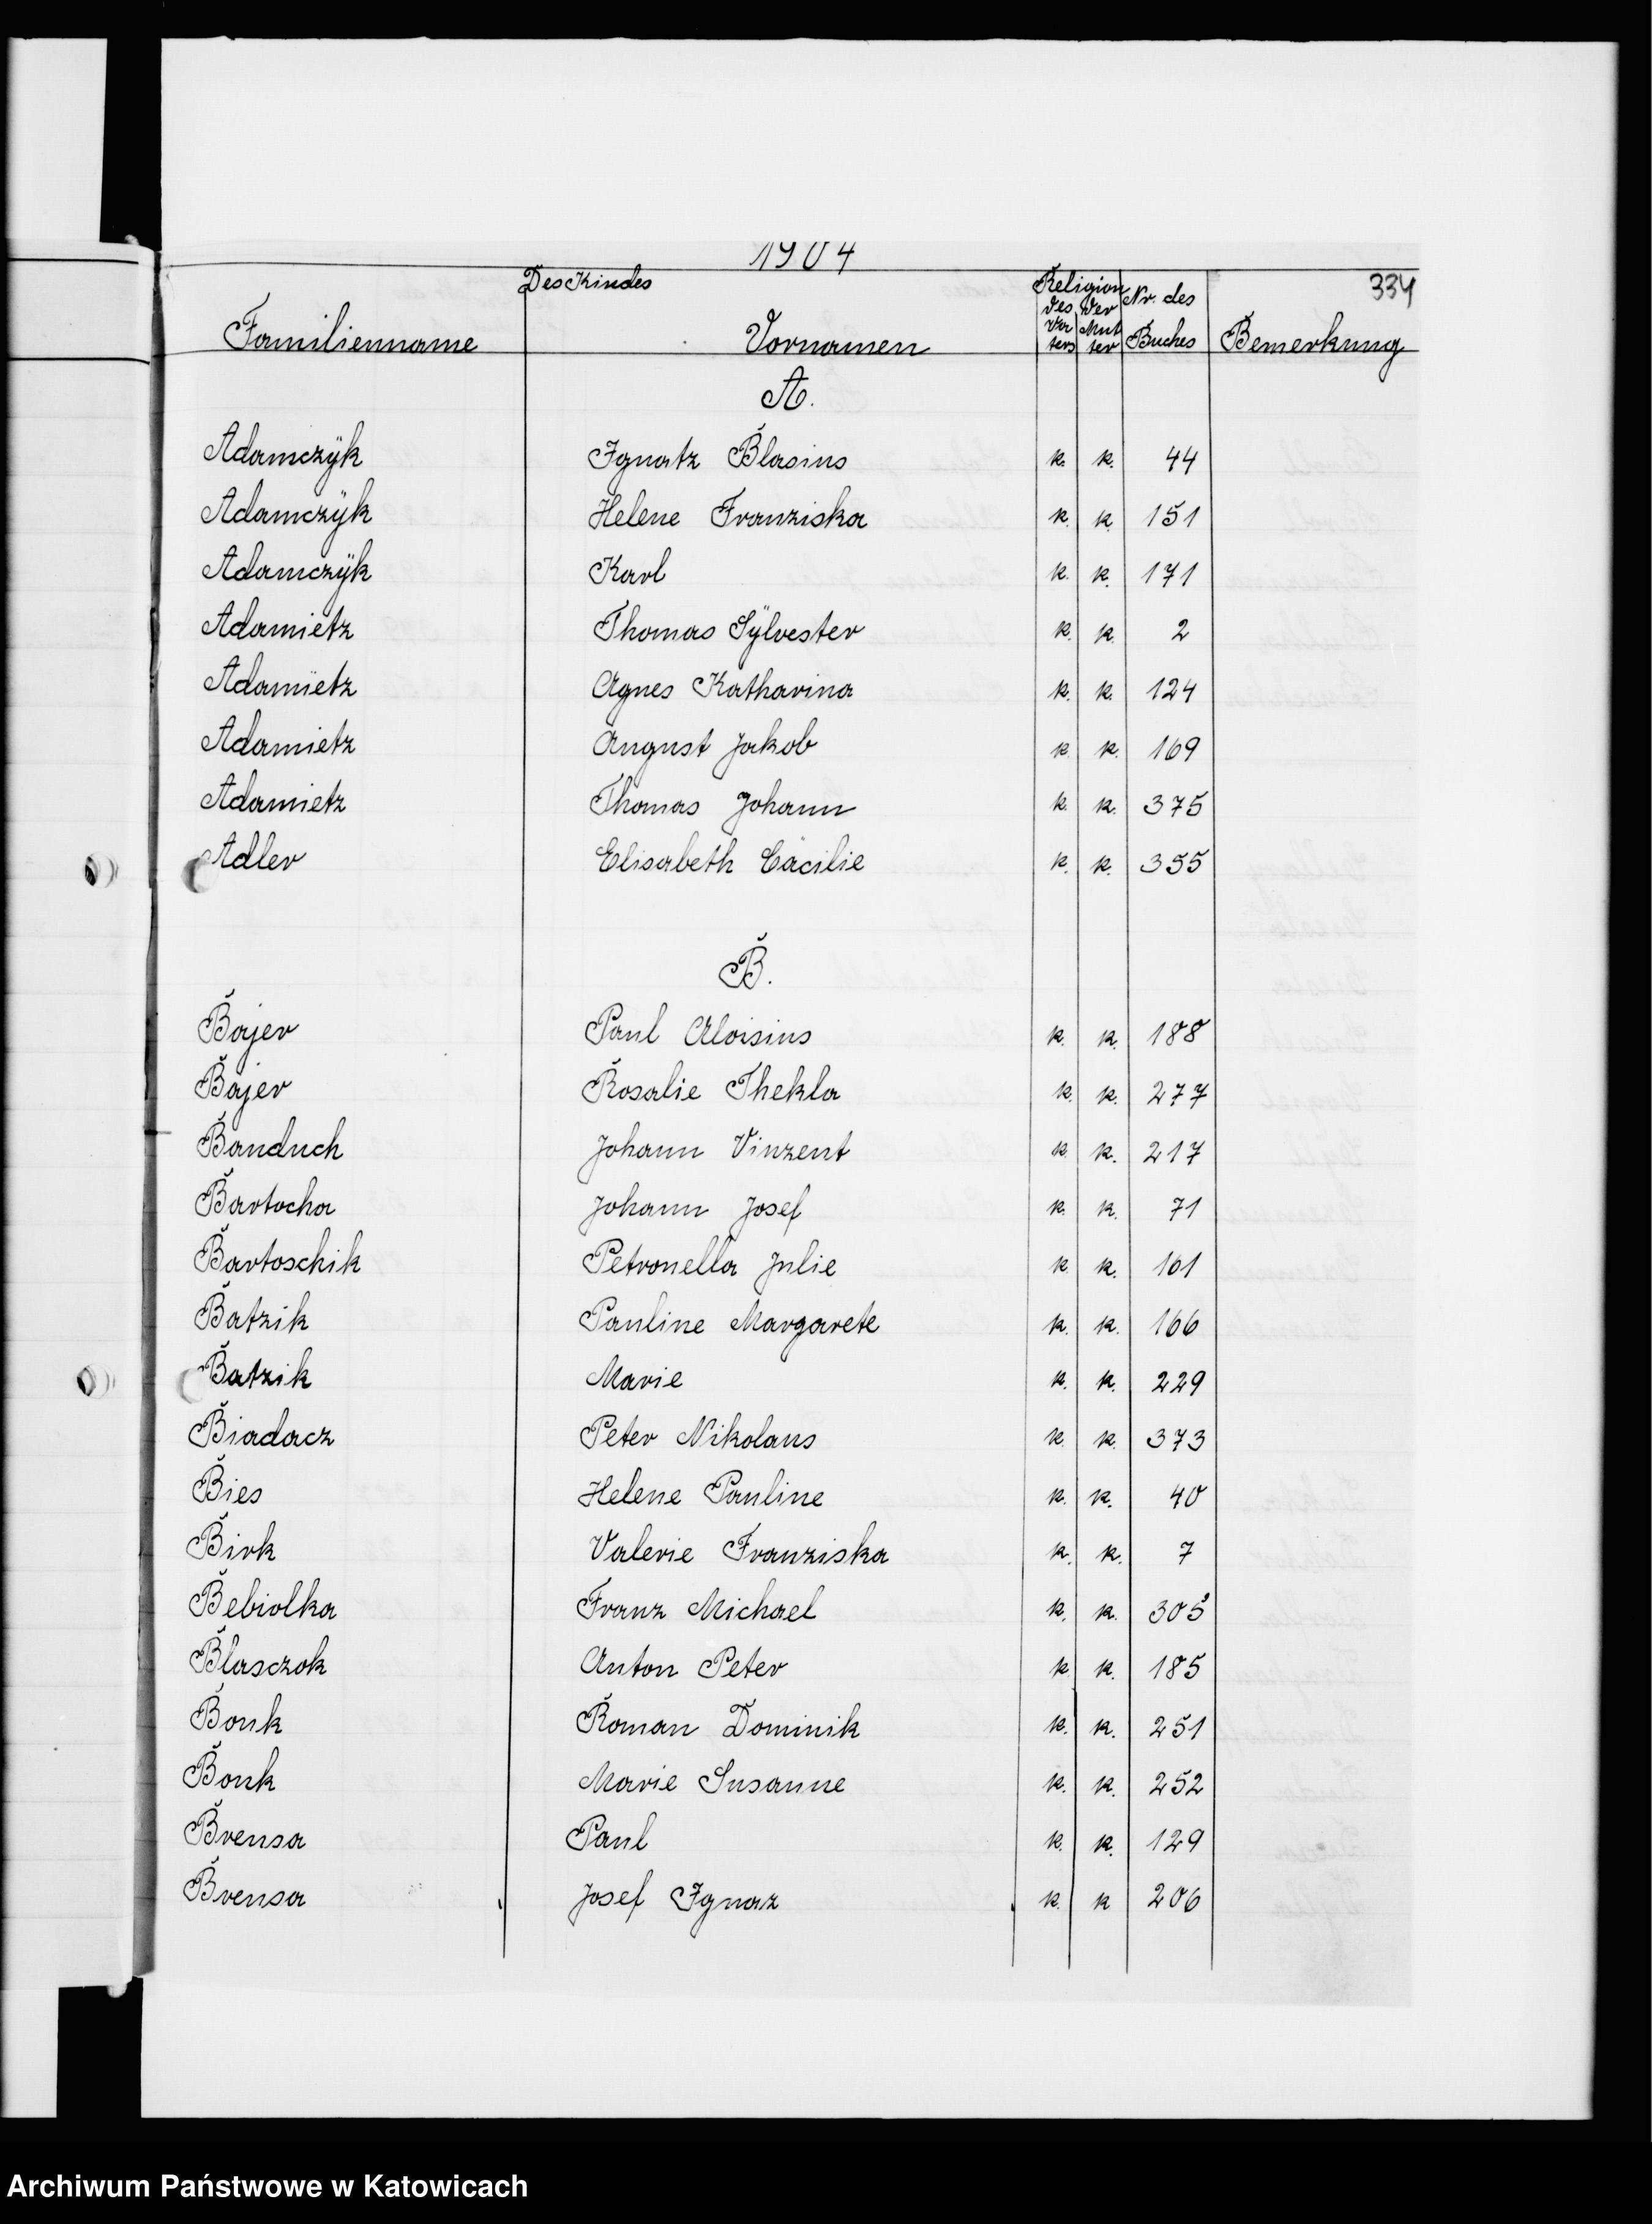 1904
Des Kindes Religion Nr. des 334
des Vaters der Mutter
Familienname Vornamen Buches Bemerkung
A.
Adamczÿk Ignatz Blasius k. k. 44
Adamczÿk Helene Franziska k. k. 151
Adamczÿk Karl k. k. 171
Adamietz Thomas Sÿlvester k. k. 2
Adamietz Agnes Katharina k. k. 124
Adamietz August Jakob k k. 169
Adamietz Thomas Johann k. k. 375
Adler Elisabeth Cäcilie k. k. 355
B.
Bajer Paul Aloisius k. k. 188
Bajer Rosalie Thekla k. k. 277
Banduch Johann Vinzent k. k. 217
Bartocha Johann Josef k. k. 71
Bartoschik Petronella Julie k. k. 161
Batzik Pauline Margarete k. k. 166
Batzik Marie k. k. 229
Biadacz Peter Nikolaus k. k. 373
Bies Helene Pauline k. k. 40
Birk Valerie Franziska k. k. 7
Bebiolka Franz Michael k. k. 305
Blasczok Anton Peter k k. 185
Bonk Roman Dominik k. k. 251
Bonk Marie Susanne k. k. 252
Brensa Paul k. k. 129
Brensa Josef Ignaz k. k 206
Archiwum Państwowe w Katowicach